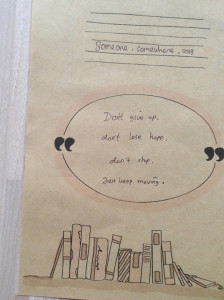 Someone, somewhere, 2019
Don't give up.
don't lose hope.
don't stop.
Just keep moving.